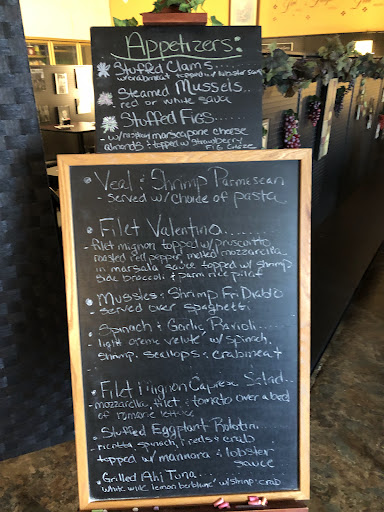 Appetizers:
Stuffed Clams
w/crabmeat topped w/ lobster sauce
Steamed Mussels..
red or white sauce
Stuffed Figs...
- w/ marscapone cheese
almonds & topped w/ strawberry
Fig Glaze
• Veal & Shrimp Parmesean
- served w/ choice of pasta
• Filet Valentino........
- filet mignon topped w/ prusciutto,
roasted red pepper, melted mozzarella
in marsala sauce topped w/ shrimp
side broccoli & parm rice pilaf
• Mussles & Shrimp Fra Diablo
- served over spaghetti
• Spinach & Garlic Ravioli......
- light creme velute w/ spinach,
shrimp, scallops & crabmeat
• Filet Mignon Caprese Salad...
- mozzarella, filet & tomato over a bed
of romaine lettuce
• Stuffed Eggplant Rolotini
- ricotta, spinach, & crab
topped w/ marinara & lobster
sauce
• Grilled Ahi Tuna...
white wine lemon w/ shrimp & crab